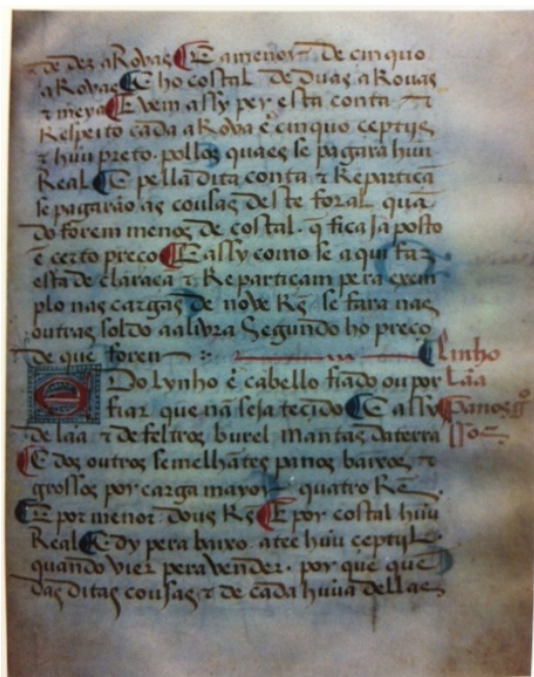 de dez aRobas E a menor de cinquo
aRobas E ho costal de duas aRouas
⁊ meya E vem assy per esta conta ⁊
Respeito cada aRoba e cinquo ceptijs
⁊ hũu preto. pollos quaes se pagarã hũu
Real E pella dita conta ⁊ Repartiçã
se pagarão as cousas deste foral quã
do forem menos de costal. q̃ fica ja posto
ẽ certo preço E assy como se aqui faz
esta declaraçã ⁊ Reparticam pera exem
plo nas cargas de nove R̃s se fara nas
outras soldo aalivra Segundo ho preço
de que foren
Linho
Do Lynho ẽ cabello fiado ou por
Lãa
fiar que nã seja tecido E assy
Panos g
de lãa ⁊ de feltros burel mantas daterra
sso
E dos outros semelhãtes panos baixos ⁊
grossos por carga mayor quatro R̃s.
E por menor dous R̃s E por costal hũu
Real E dy pera baixo atee hũu ceptil
quando vier pera vender. por que quẽ
das ditas cousas ⁊ de cada hũua dellas